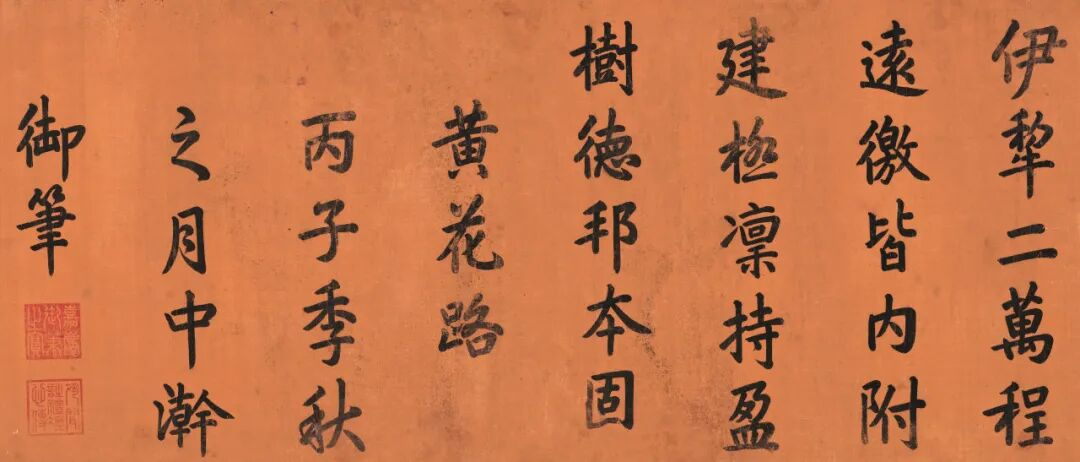 伊犂二萬程
遠徼皆内附
建極凛持盈
樹德邦本固
黄花路
丙子季秋
之月中澣
御筆